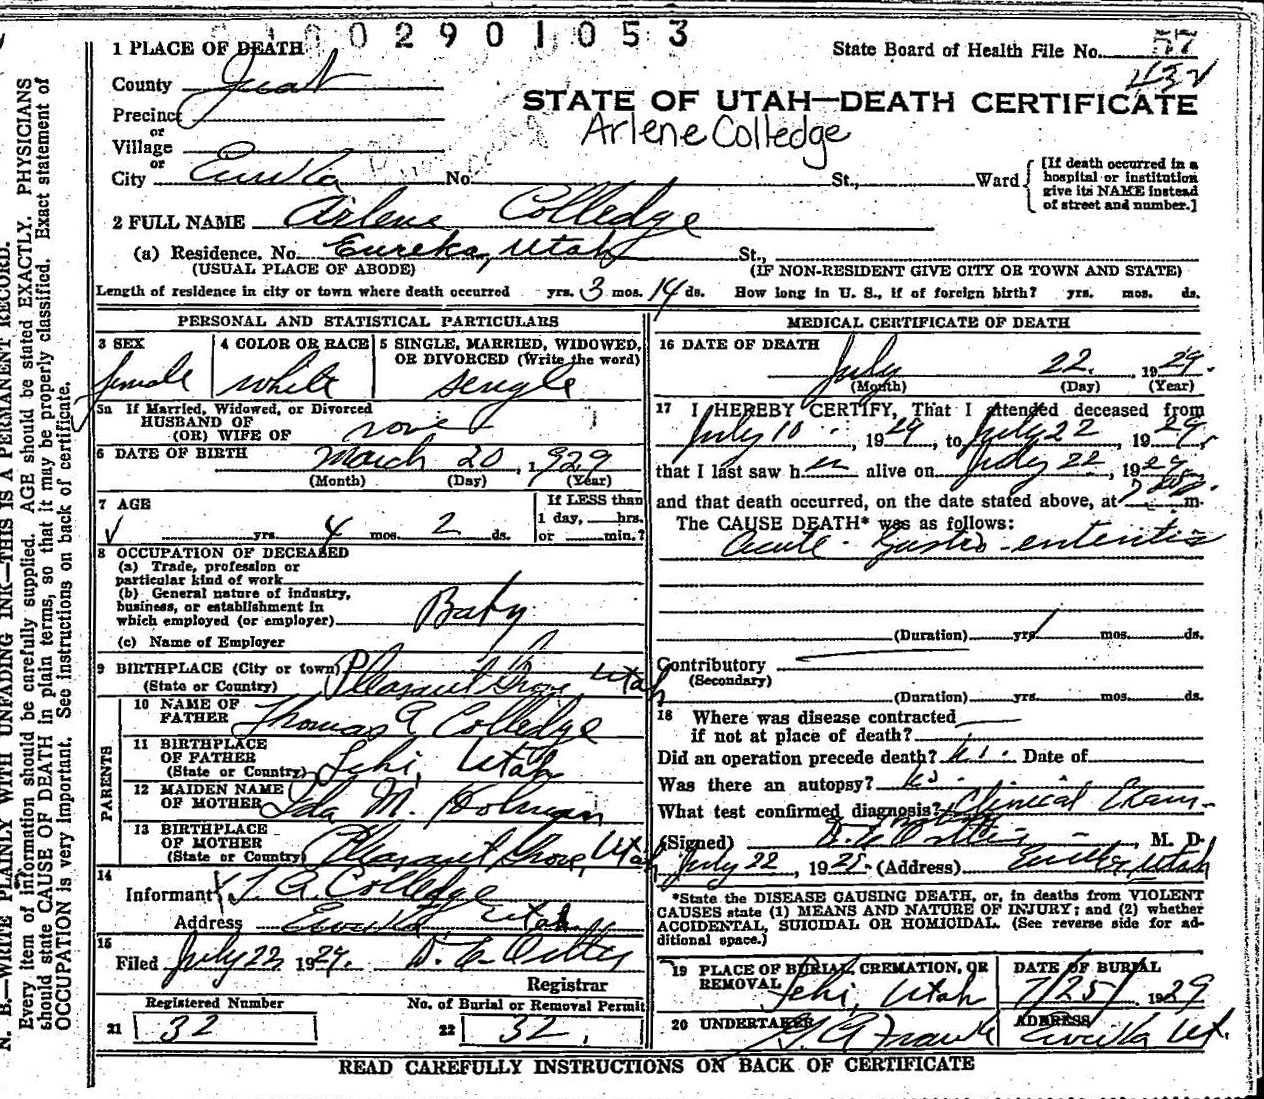 002901053
1 PLACE OF DEATH
State Board of Health File No. 57
432
County Juab
STATE OF UTAH—DEATH CERTIFICATE
Precinct
Arlene Colledge
or
Village
or
City Eureka No. St., Ward
[If death occurred in a
hospital or institution
give its NAME instead
of street and number.]
2 FULL NAME Arlene Colledge
(a) Residence. No. Eureka, Utah St.,
(USUAL PLACE OF ABODE) (IF NON-RESIDENT GIVE CITY OR TOWN AND STATE)
Length of residence in city or town where death occurred yrs. 3 mos. 14 ds. How long in U. S., if of foreign birth? yrs. mos. ds.
PERSONAL AND STATISTICAL PARTICULARS
3 SEX
female
4 COLOR OR RACE
white
5 SINGLE, MARRIED, WIDOWED,
OR DIVORCED (Write the word)
single
5a If Married, Widowed, or Divorced
HUSBAND OF
(OR) WIFE OF none
6 DATE OF BIRTH March 20, 1929
(Month) (Day) (Year)
7 AGE
yrs. 4 mos. 2 ds.
If LESS than
1 day, hrs.
or min.?
8 OCCUPATION OF DECEASED
(a) Trade, profession or
particular kind of work
(b) General nature of industry,
business, or establishment in
which employed (or employer) Baby
(c) Name of Employer
9 BIRTHPLACE (City or town) Pleasant Grove Utah
(State or Country)
PARENTS
10 NAME OF
FATHER Thomas A Colledge
11 BIRTHPLACE
OF FATHER
(State or Country) Lehi, Utah
12 MAIDEN NAME
OF MOTHER Ida M. Holman
13 BIRTHPLACE
OF MOTHER
(State or Country) Pleasant Grove, Utah
14
Informant T. A. Colledge
Address Eureka, Utah
15
Filed July 22, 1929.
Registrar
Registered Number
21 32
No. of Burial or Removal Permit
22 32.
MEDICAL CERTIFICATE OF DEATH
16 DATE OF DEATH
July 22. 1929.
(Month) (Day) (Year)
17 I HEREBY CERTIFY, That I attended deceased from
July 10, 1929, to July 22, 1929,
that I last saw her alive on July 22, 1929
and that death occurred, on the date stated above, at m.
The CAUSE DEATH* was as follows:
Acute Gastro-enteritis
(Duration) yrs. mos. ds.
Contributory
(Secondary)
(Duration) yrs. mos. ds.
18 Where was disease contracted
if not at place of death?
Did an operation precede death? No. Date of
Was there an autopsy? No.
What test confirmed diagnosis? Clinical Exam-
(Signed) M. D.
July 22, 1929. (Address) Eureka, Utah
*State the DISEASE CAUSING DEATH, or, in deaths from VIOLENT
CAUSES state (1) MEANS AND NATURE OF INJURY; and (2) whether
ACCIDENTAL, SUICIDAL OR HOMICIDAL. (See reverse side for ad-
ditional space.)
19 PLACE OF BURIAL, CREMATION, OR
REMOVAL Lehi, Utah
DATE OF BURIAL
7/25/ 1929
20 UNDERTAKER
ADDRESS
Eureka Ut.
READ CAREFULLY INSTRUCTIONS ON BACK OF CERTIFICATE
N. B.—WRITE PLAINLY WITH UNFADING INK—THIS IS A PERMANENT RECORD.
Every item of information should be carefully supplied. AGE should be stated EXACTLY. PHYSICIANS
should state CAUSE OF DEATH in plain terms, so that it may be properly classified. Exact statement of
OCCUPATION is very important. See instructions on back of certificate.